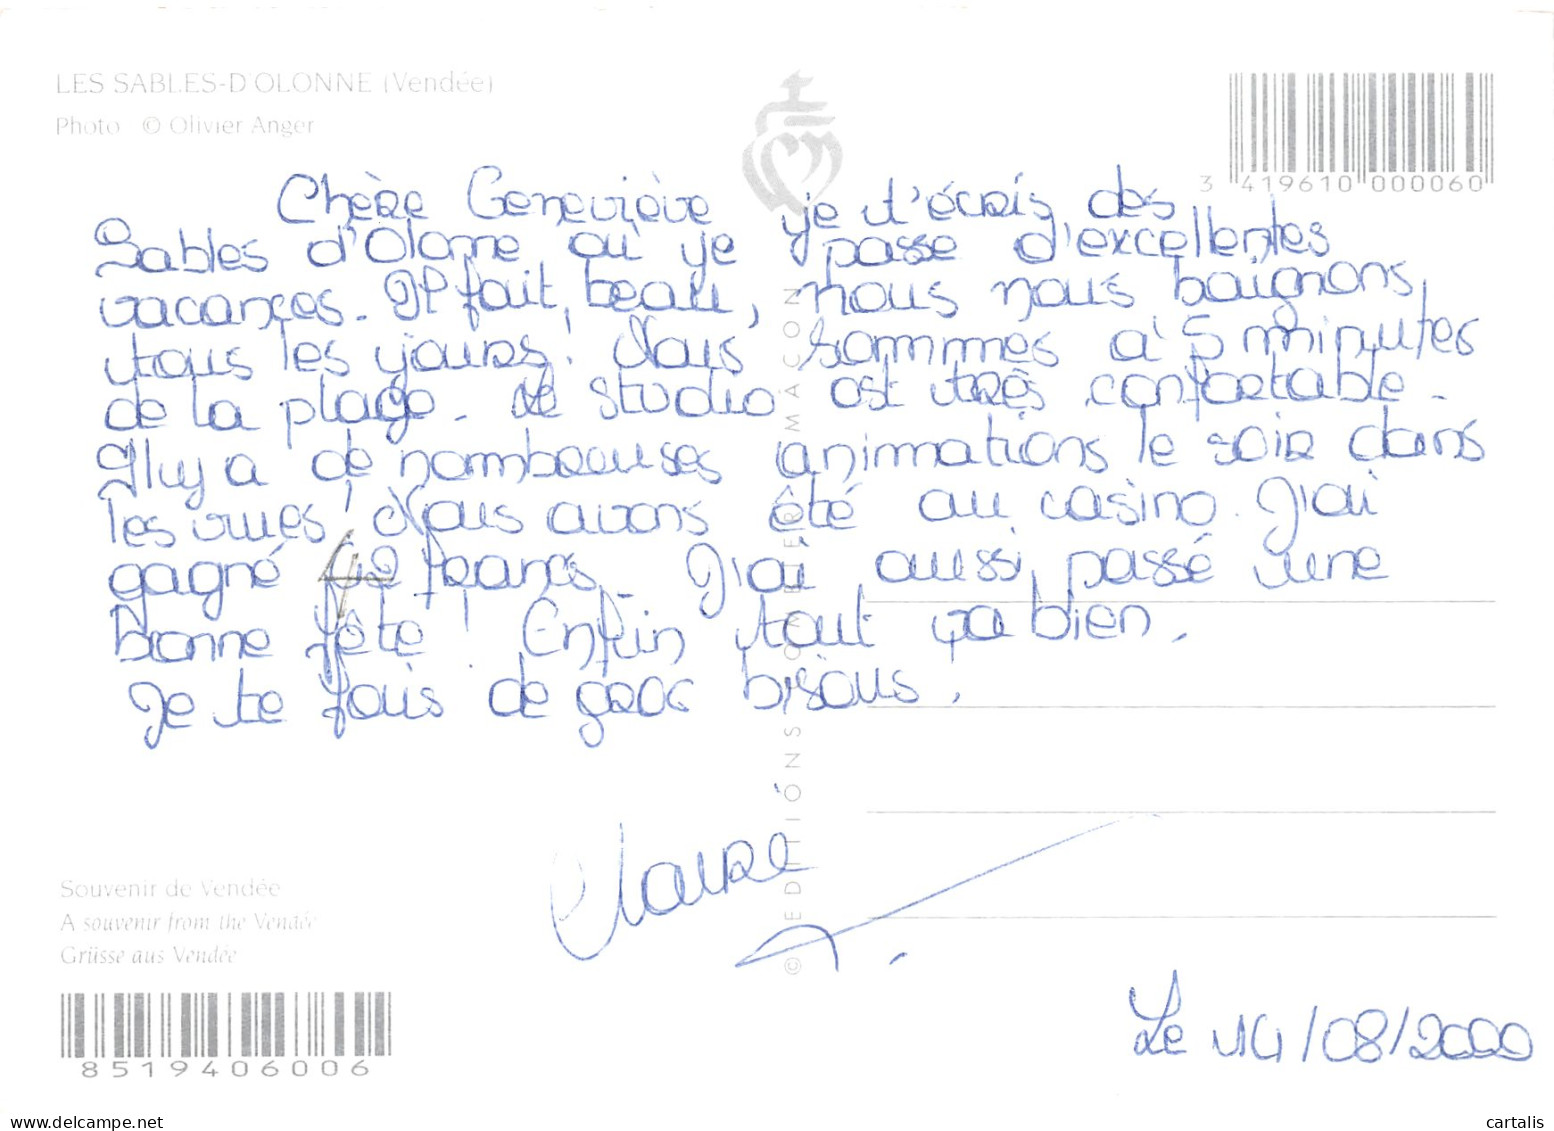 LES SABLES-D'OLONNE (Vendée)
Photo © Olivier Anger
3 419610 000060
Chère Geneviève je t'écris des
Sables d'Olonne où je passe d'excellentes
vacances. Il fait beau, nous nous baignons
tous les jours! Nous sommes à 5 minutes
de la plage. Le studio est très confortable.
Il y a de nombreuses animations le soir dans
les rues! Nous avons été au casino. J'ai
gagné francs. J'ai aussi passé une
bonne fête! Enfin tout va bien.
Je te fais de gros bisous.
Claire
© EDITIONS MACON
Souvenir de Vendée
A souvenir from the Vendée
Grüsse aus Vendée
8519406006
Le 14/08/2000
www.delcampe.net
cartalis